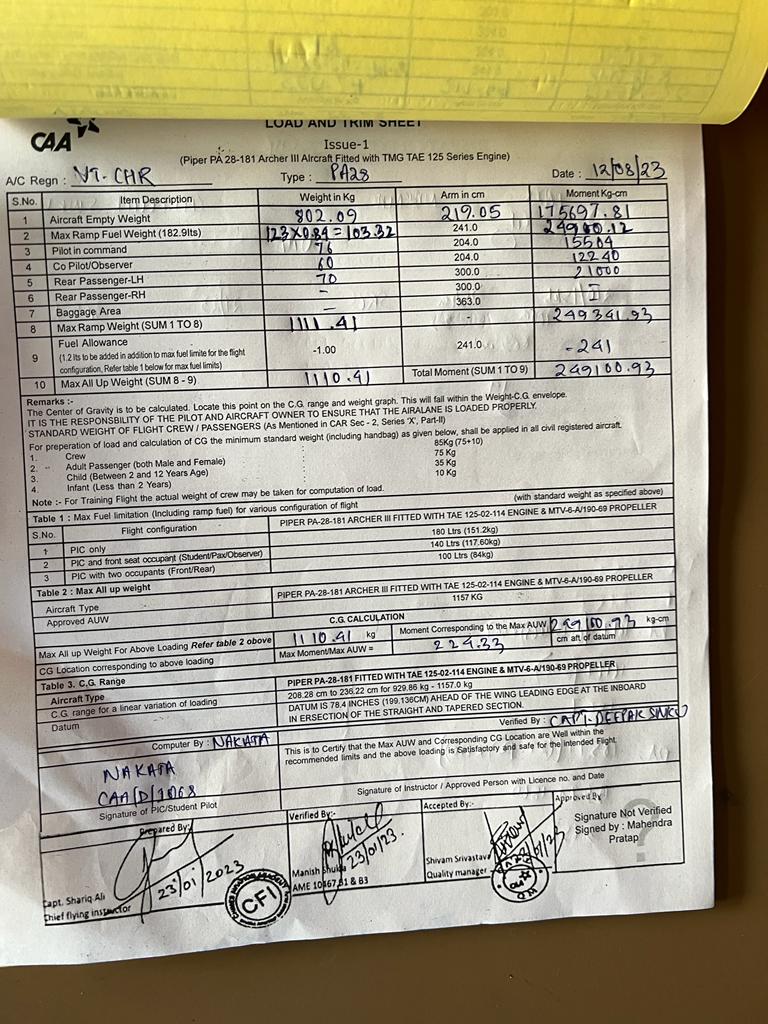 LOAD AND TRIM SHEET
CAA
Issue-1
(Piper PA 28-181 Archer III Aircraft Fitted with TMG TAE 125 Series Engine)
A/C Regn : VT-CHR Type : PA28 Date : 12/08/23
S.No. Item Description Weight in Kg Arm in cm Moment Kg-cm
1 Aircraft Empty Weight 802.09 219.05 175697.81
2 Max Ramp Fuel Weight (182.9lts) 123X0.84 = 103.32 241.0 24900.12
3 Pilot in command 76 204.0 15504
4 Co Pilot/Observer 60 204.0 12240
5 Rear Passenger-LH 70 300.0 21000
6 Rear Passenger-RH - 300.0
7 Baggage Area - 363.0
8 Max Ramp Weight (SUM 1 TO 8) 1111.41 - 249341.93
9 Fuel Allowance
(1.2 lts to be added in addition to max fuel limite for the flight configuration, Refer table 1 below for max fuel limits) -1.00 241.0 -241
10 Max All Up Weight (SUM 8 - 9) 1110.41 Total Moment (SUM 1 TO 9) 249100.93
Remarks :-
The Center of Gravity is to be calculated. Locate this point on the C.G. range and weight graph. This will fall within the Weight-C.G. envelope.
IT IS THE RESPONSBILITY OF THE PILOT AND AIRCRAFT OWNER TO ENSURE THAT THE AIRALANE IS LOADED PROPERLY.
STANDARD WEIGHT OF FLIGHT CREW / PASSENGERS (As Mentioned in CAR Sec - 2, Series 'X', Part-II)
For preperation of load and calculation of CG the minimum standard weight (including handbag) as given below, shall be applied in all civil registered aircraft.
1. Crew 85Kg (75+10)
2. Adult Passenger (both Male and Female) 75 Kg
3. Child (Between 2 and 12 Years Age) 35 Kg
4. Infant (Less than 2 Years) 10 Kg
Note :- For Training Flight the actual weight of crew may be taken for computation of load.
Table 1 : Max Fuel limitation (Including ramp fuel) for various configuration of flight (with standard weight as specified above)
S.No. Flight configuration PIPER PA-28-181 ARCHER III FITTED WITH TAE 125-02-114 ENGINE & MTV-6-A/190-69 PROPELLER
1 PIC only 180 Ltrs (151.2kg)
2 PIC and front seat occupant (Student/Pax/Observer) 140 Ltrs (117.60kg)
3 PIC with two occupants (Front/Rear) 100 Ltrs (84kg)
Table 2 : Max All up weight
Aircraft Type PIPER PA-28-181 ARCHER III FITTED WITH TAE 125-02-114 ENGINE & MTV-6-A/190-69 PROPELLER
Approved AUW 1157 KG
C.G. CALCULATION
Max All up Weight For Above Loading Refer table 2 obove 1110.41 kg Moment Corresponding to the Max AUW 249100.93 kg-cm
CG Location corresponding to above loading Max Moment/Max AUW = 224.33 cm aft of datum
Table 3. C.G. Range
Aircraft Type PIPER PA-28-181 FITTED WITH TAE 125-02-114 ENGINE & MTV-6-A/190-69 PROPELLER
C.G. range for a linear variation of loading 208.28 cm to 236.22 cm for 929.86 kg - 1157.0 kg
Datum DATUM IS 78.4 INCHES (199.136CM) AHEAD OF THE WING LEADING EDGE AT THE INBOARD
IN ERSECTION OF THE STRAIGHT AND TAPERED SECTION.
Computer By : NAKATA Verified By : CAPT. DEEPAK
This is to Certify that the Max AUW and Corresponding CG Location are Well within the
recommended limits and the above loading is Satisfactory and safe for the intended Flight.
NAKATA
Signature of PIC/Student Pilot
Signature of Instructor / Approved Person with Licence no. and Date
Prepared By:-
23/01/2023
Capt. Shariq Ali
Chief flying instructor
CFI
Verified By:-
23/01/23.
Manish Shukla
AME 10467,B1 & B3
Accepted By:-
Shivam Srivastava
Quality manager
Approved By
Signature Not Verified
Signed by : Mahendra
Pratap